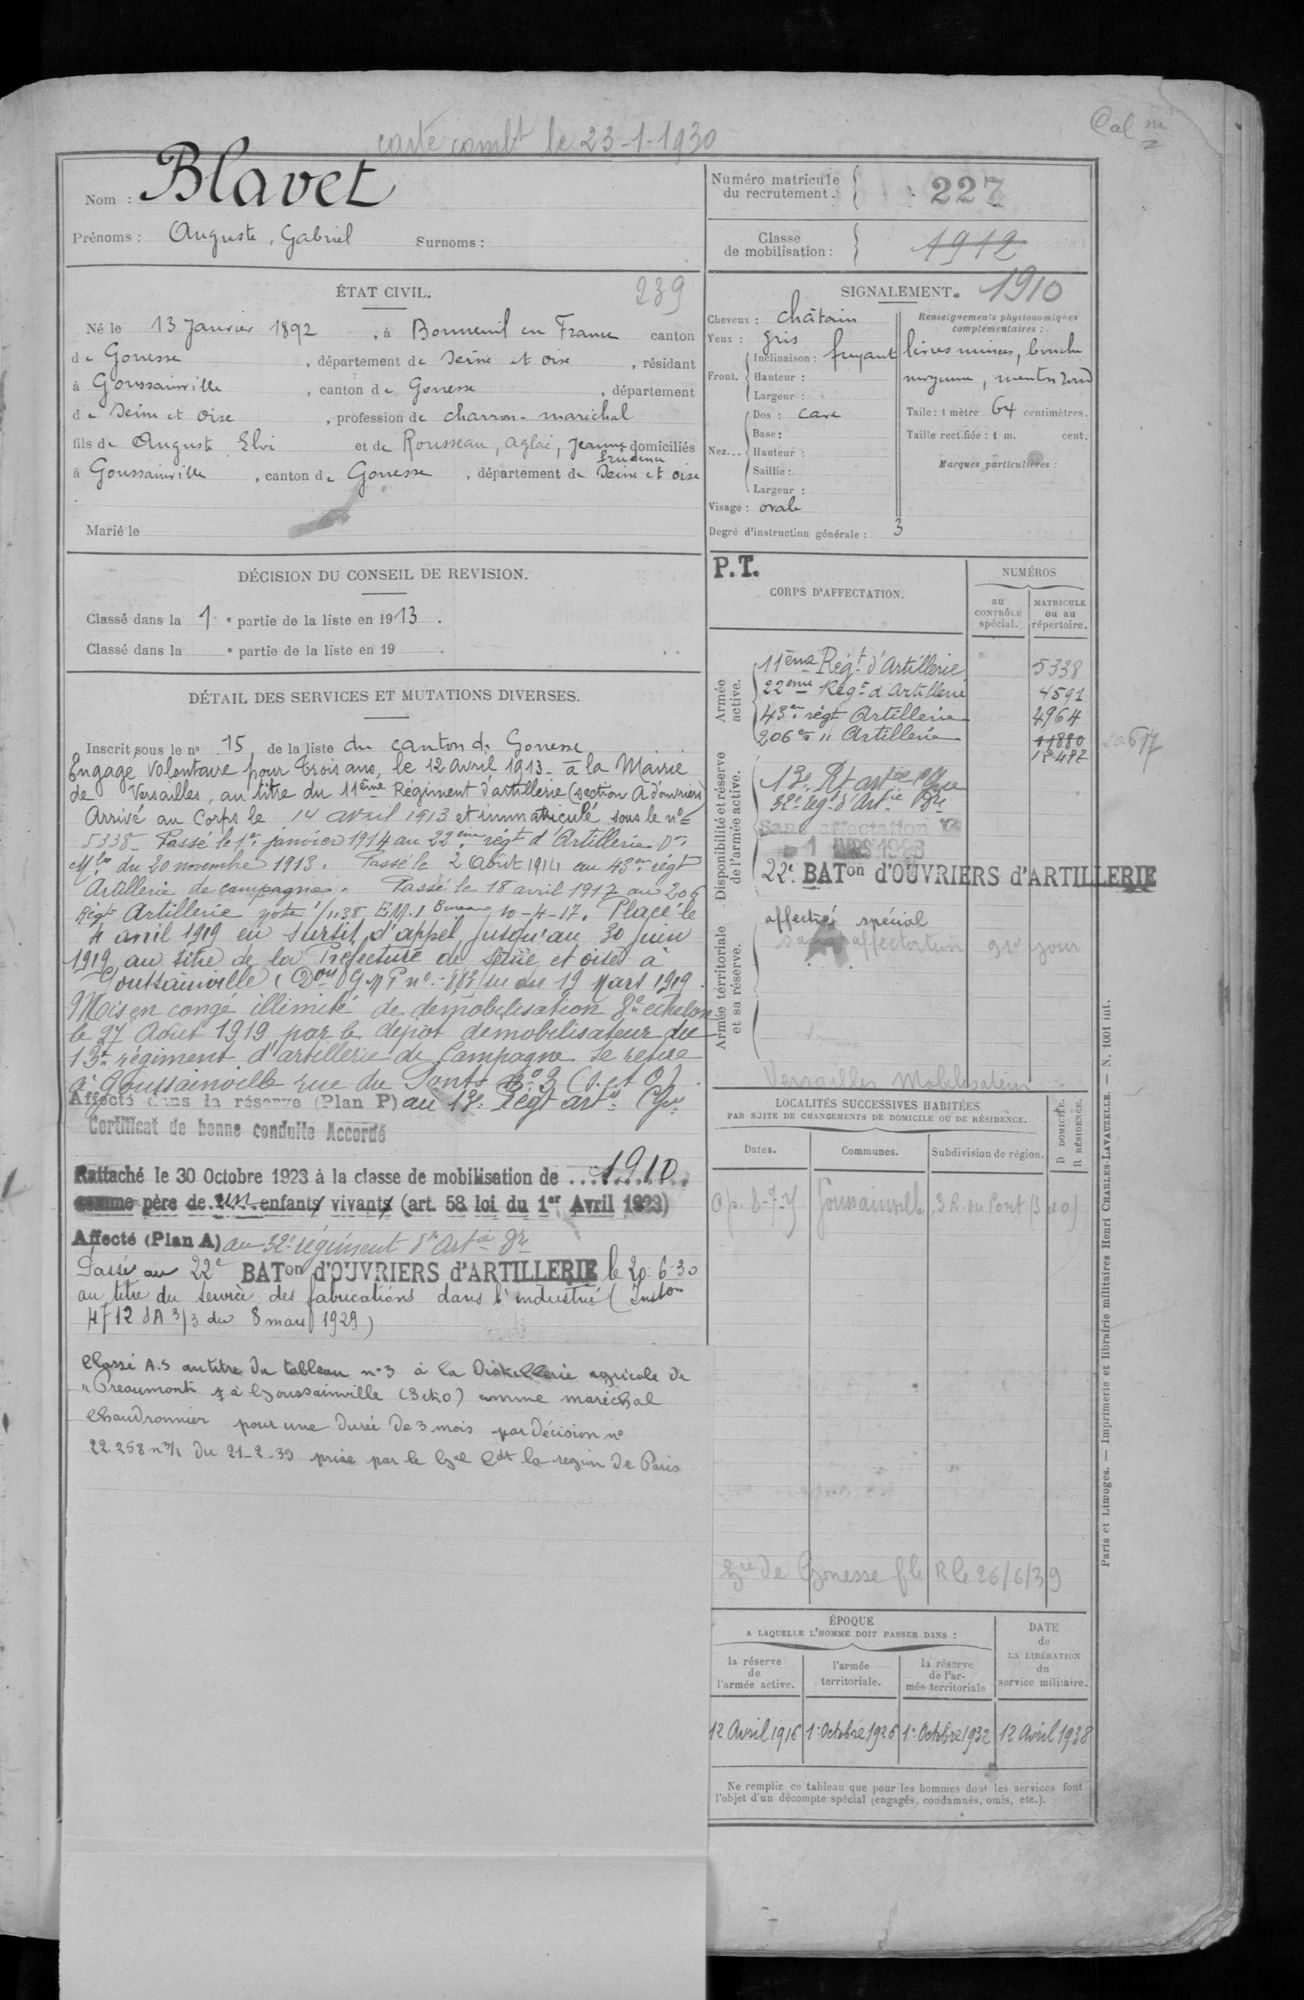 carte combt le 23-1-1930
Nom : Blavet
Prénoms : Auguste, Gabriel Surnoms :
Numéro matricule du recrutement : 227
Classe de mobilisation : 1912
1910
ÉTAT CIVIL.
239
Né le 13 Janvier 1892, à Bonneuil en France canton
de Gonesse, département de Seine et oise, résidant
à Goussainville, canton de Gonesse, département
de Seine et oise, profession de charron-maréchal
fils de Auguste Elvi et de Rousseau, Aglaé, Jeanne Prudence domiciliés
à Goussainville, canton de Gonesse, département de Seine et oise
Marié le
SIGNALEMENT.
Cheveux : châtain
Yeux : gris
Front. Inclinaison : fuyant
Hauteur :
Largeur :
Nez... Dos : cave
Base :
Hauteur :
Saillie :
Largeur :
Visage : ovale
Degré d'instruction générale : 3
Renseignements physionomiques complémentaires :
lèvres minces, bouche
moyenne, menton rond
Taille : 1 mètre 64 centimètres.
Taille rectifiée : 1 m. cent.
Marques particulières :
DÉCISION DU CONSEIL DE REVISION.
Classé dans la 1e partie de la liste en 1913.
Classé dans la e partie de la liste en 19 .
DÉTAIL DES SERVICES ET MUTATIONS DIVERSES.
Inscrit sous le n° 15 de la liste du canton de Gonesse
Engagé Volontaire pour trois ans, le 12 avril 1913 - à la Mairie
de Versailles, au titre du 11ème Régiment d'artillerie (section A d'ouvriers)
Arrivé au Corps le 14 avril 1913 et immatriculé sous le n°
5338 - Passé le 1er janvier 1914 au 22ème régt d'Artillerie Don
Mlle du 20 novembre 1913. Passé le 2 Août 1914 au 43e régt
Artillerie de campagne. Passé le 18 avril 1917 au 206
Régt Artillerie note 1/1138 E.M. 1 Bureau 10-4-17. Placé le
4 avril 1919 en sursit d'appel jusqu'au 30 juin
1919 au titre de la Préfecture de Seine et oise à
Goussainville du 19 Mars 1919.
Mis en congé illimité de démobilisation 8e échelon
le 27 Août 1919 par le dépôt démobilisateur du
13e régiment d'artillerie de Campagne. Se retire
à Goussainville rue du Pont n° 3 (S. et O).
Affecté dans la réserve (Plan P) au 13e Régt arti Cgne
Certificat de bonne conduite Accordé
Rattaché le 30 Octobre 1923 à la classe de mobilisation de 1910
comme père de un enfants vivants (art. 58 loi du 1er Avril 1923)
Affecté (Plan A) au 32e régiment d'Artie Dre
Passé au 22e BATon d'OUVRIERS d'ARTILLERIE le 20-6-30
au titre du service des fabrications dans l'industrie (Inston
4712 SA 3/3 du 8 mars 1929)
Classé A.S au titre du tableau n°3 à la Distillerie agricole de
à Goussainville (S et O) comme maréchal
Chaudronnier pour une durée de 3 mois par décision n°
22.258 n 3/1 du 21-2-39 prise par le Gal Cdt la région de Paris
P.T.
CORPS D'AFFECTATION.
NUMÉROS
au CONTRÔLE spécial.
MATRICULE ou au répertoire.
Armée active.
11ème Régt d'Artillerie 5338
22ème Régt d'Artillerie 4591
43e régt Artillerie 4964
206e " Artillerie 11880
12472
Disponibilité et réserve de l'armée active.
13e Rt artie Cgne
32e rég. d'Artie Dre
Sans affectation
1 MARS 1923
22e BATon d'OUVRIERS d'ARTILLERIE
Armée territoriale et sa réserve.
affecté spécial
sans affectation
Versailles Mobilisateur
LOCALITÉS SUCCESSIVES HABITÉES
PAR SUITE DE CHANGEMENTS DE DOMICILE OU DE RÉSIDENCE.
Dates. Communes. Subdivision de région. D DOMICILE. R RÉSIDENCE.
Goussainville, 3 R. du Pont (S et O)
Gie de Gonesse R le 26/6/39
ÉPOQUE
A LAQUELLE L'HOMME DOIT PASSER DANS :
la réserve de l'armée active.
l'armée territoriale.
la réserve de l'armée territoriale
DATE de LA LIBÉRATION du service militaire.
12 Avril 1916 1er Octobre 1926 1er Octobre 1932 12 Avril 1938
Ne remplir ce tableau que pour les hommes dont les services font
l'objet d'un décompte spécial (engagés, condamnés, omis, etc.).
Paris et Limoges. — Imprimerie et librairie militaires Henri CHARLES-LAVAUZELLE. — N. 1001 int.